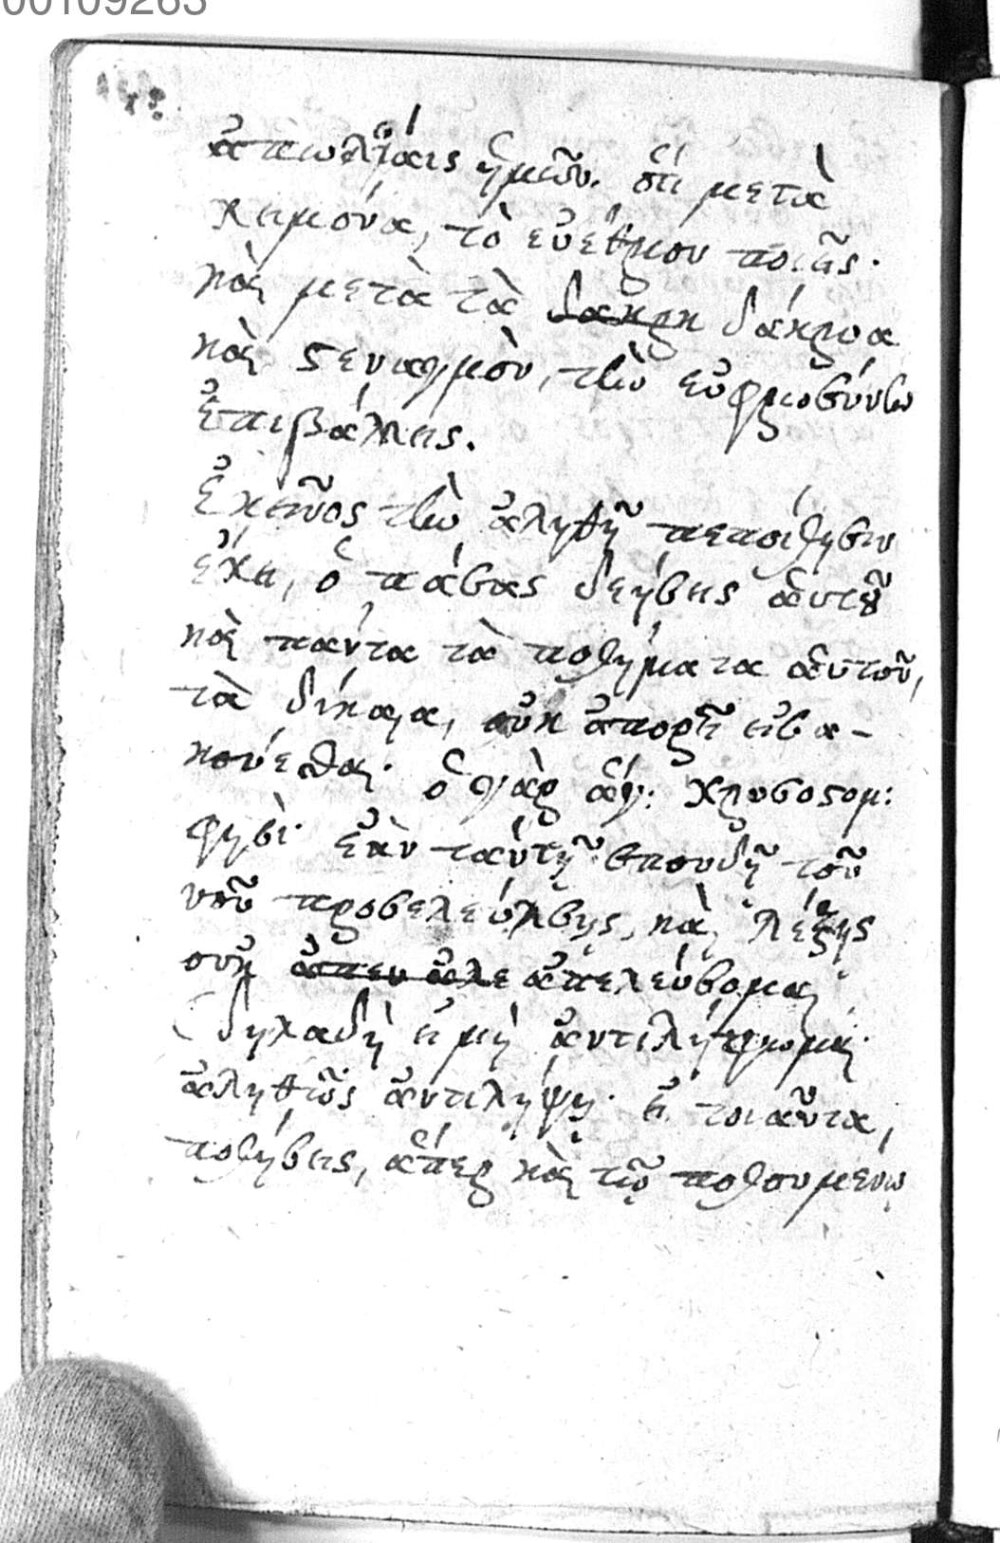 00109263
ἀπωλείαις ἡμῶν. ὅτι μετὰ
χειμόνα, τὸ εὐέθριον ποιεῖς·
καὶ μετὰ τὰ δακρη δάκρυα
καὶ στεναγμὸν, τὴν εὐφροσύνην
ἐπιβάλλεις.
Ἐκεῖνος τὴν ἀληθῆ πεποίθησιν
ἔχει, ὁ πάσας δεήσεις αὐτοῦ
καὶ πάντα τὰ ποθήματα αὐτοῦ,
τὰ δίκαια, οὐκ ἀπορεῖ εἰσα-
κούεσθαι· ὁ γὰρ ἅγ: Χρυσοστομ:
φησί· ἐὰν ταύτῃ σπουδῇ τοῦ
νοῦ προσελεύσῃς, καὶ λέξῃς
οὐκ ἀπελεύσομαι
(δηλαδὴ εἰ μὴ ἀντιλήψομαι·
ἀληθῶς ἀντιλήψῃ· εἰ τοιαῦτα,
ποθήσεις, ἅπερ καὶ τῷ ποθουμένῳ